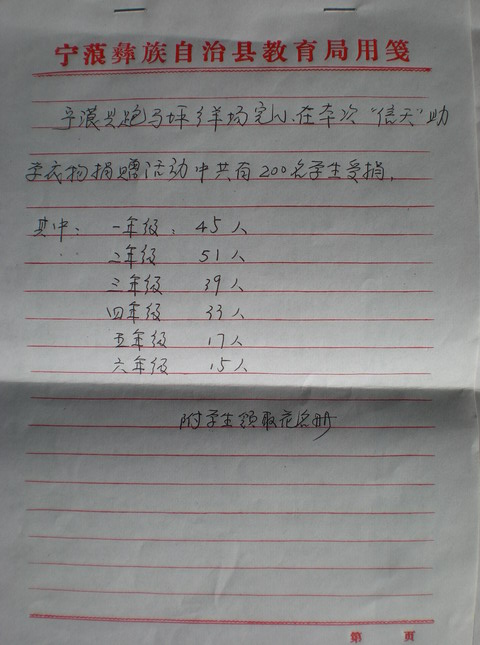 宁蒗彝族自治县教育局用笺
宁蒗县跑马坪乡羊场完小、在本次“信天”助
学衣物捐赠活动中共有200名学生受捐。
其中：一年级：45人
二年级 51人
三年级 39人
四年级 33人
五年级 17人
六年级 15人
附学生领取花名册
第 页